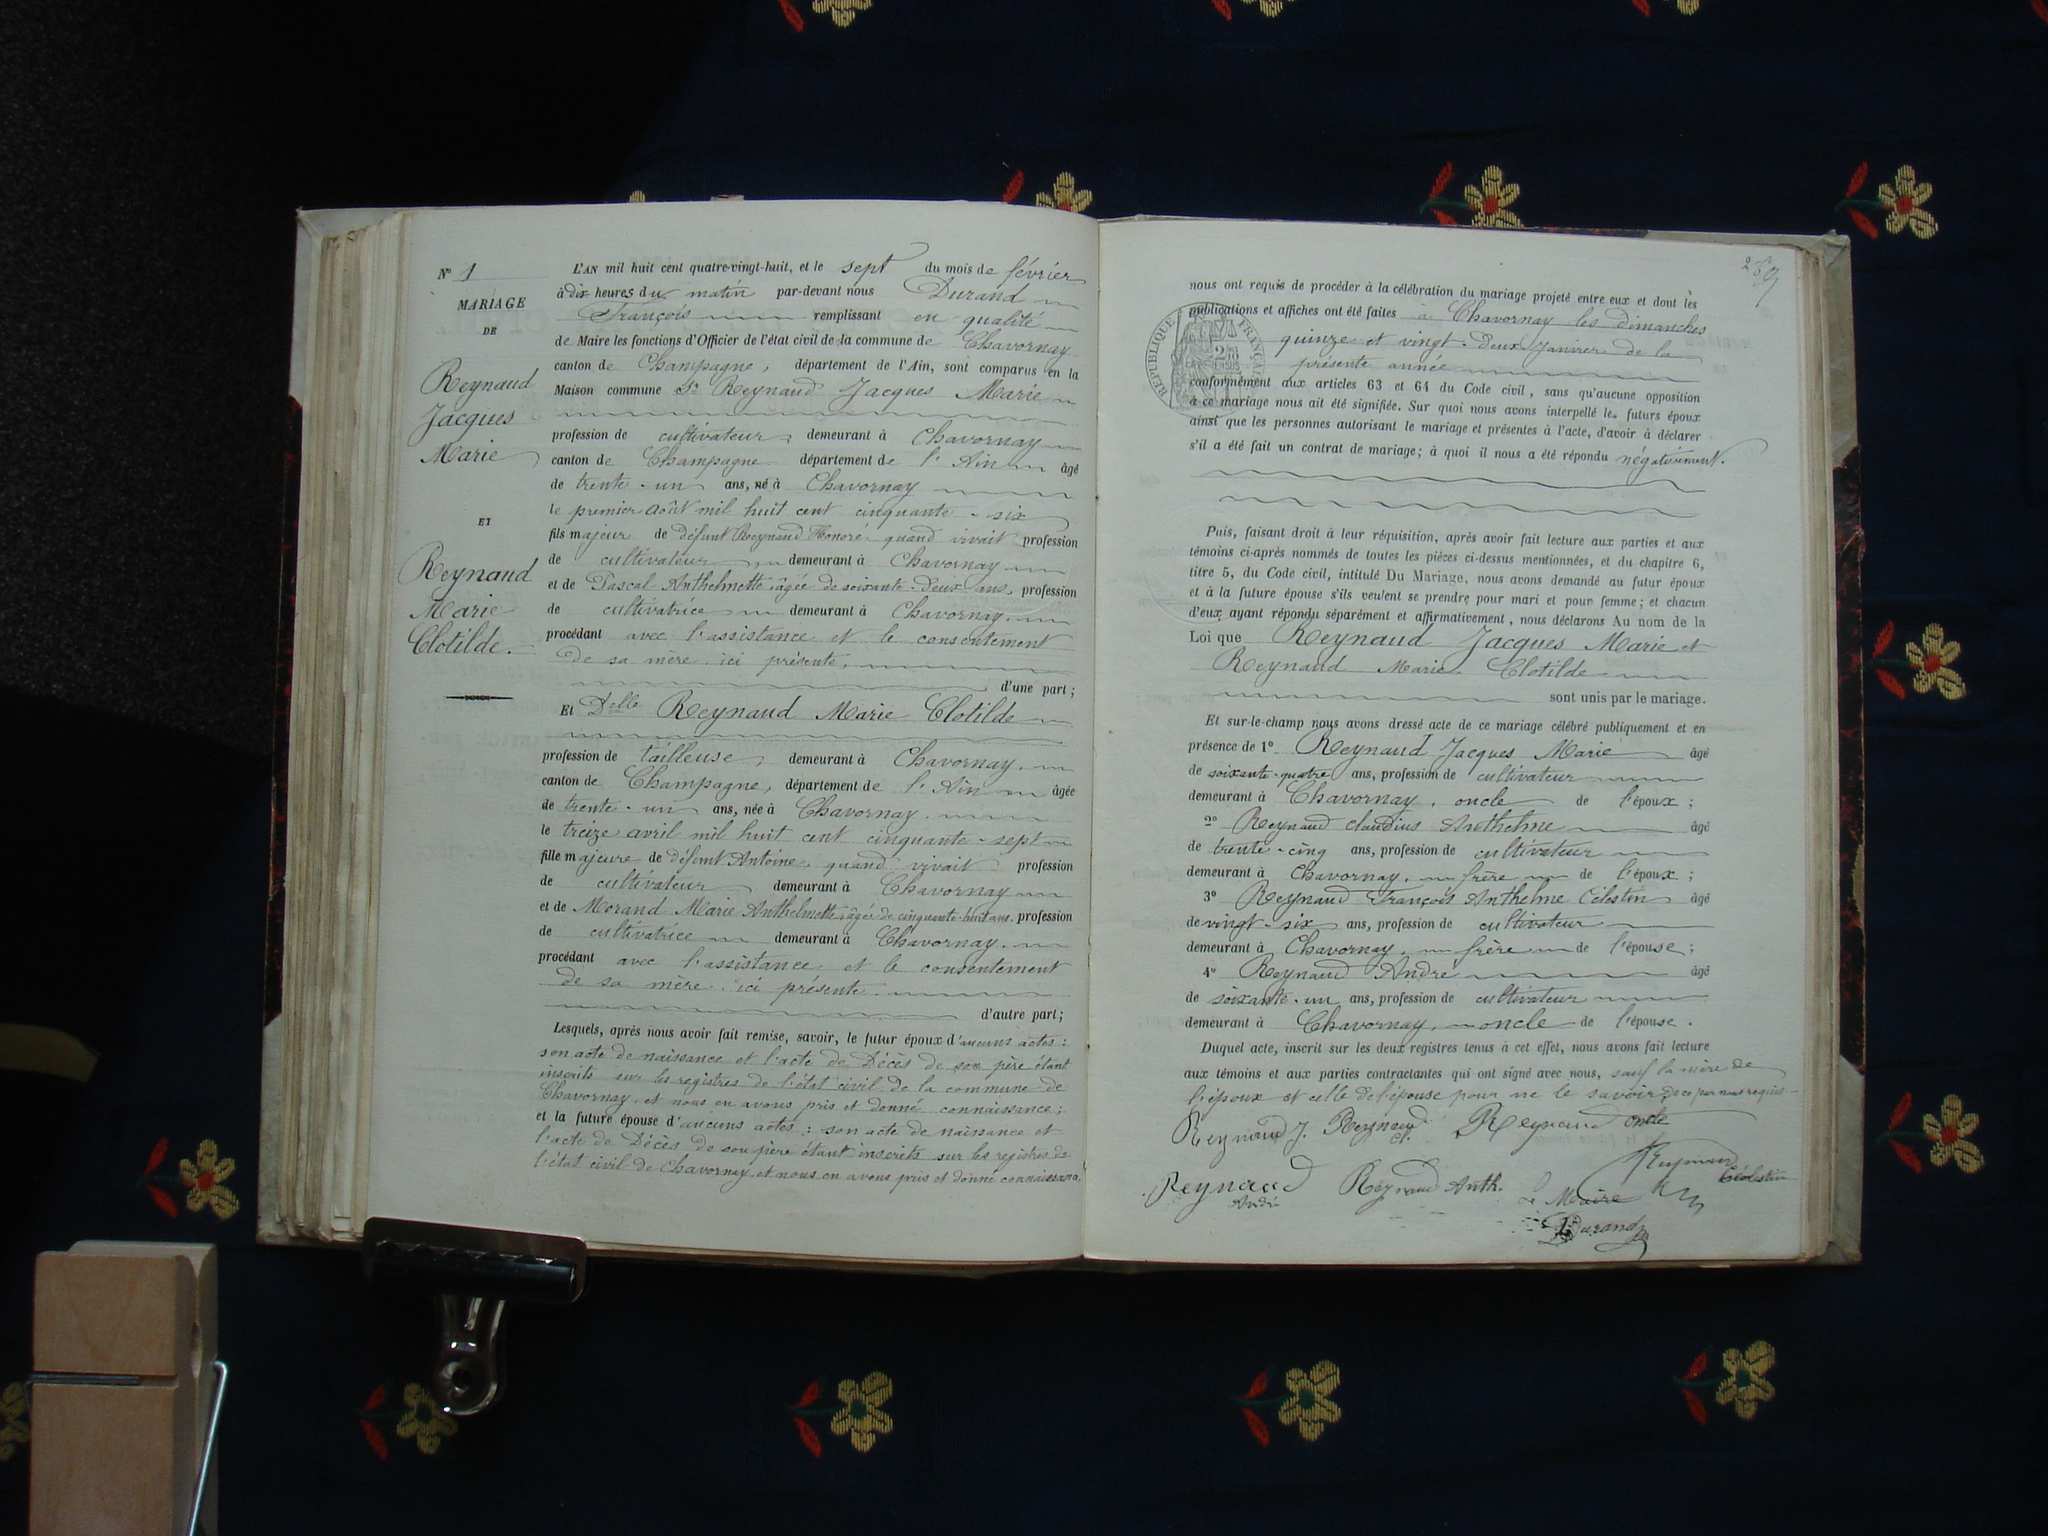 N° 1
MARIAGE
DE
Reynaud
Jacques
Marie
ET
Reynaud
Marie
Clotilde.
L'AN mil huit cent quatre-vingt-huit, et le sept du mois de février
à dix heures du matin par-devant nous Durand
François remplissant en qualité
de Maire les fonctions d'Officier de l'état civil de la commune de Chavornay
canton de Champagne, département de l'Ain, sont comparus en la
Maison commune Sr Reynaud Jacques Marie
profession de cultivateur, demeurant à Chavornay
canton de Champagne département de l'Ain âgé
de trente-un ans, né à Chavornay
le premier août mil huit cent cinquante-six
fils majeur de défunt Reynaud Honoré quand vivait profession
de cultivateur demeurant à Chavornay
et de Pascal Anthelmette âgée de soixante-deux ans, profession
de cultivatrice demeurant à Chavornay.
procédant avec l'assistance et le consentement
de sa mère ici présente,
d'une part ;
Et Delle Reynaud Marie Clotilde
profession de tailleuse, demeurant à Chavornay.
canton de Champagne, département de l'Ain âgée
de trente-un ans, née à Chavornay.
le treize avril mil huit cent cinquante-sept
fille majeure de défunt Antoine, quand vivait profession
de cultivateur demeurant à Chavornay
et de Morand Marie Anthelmette, âgée de cinquante-huit ans, profession
de cultivatrice demeurant à Chavornay.
procédant avec l'assistance, et le consentement
de sa mère ici présente.
d'autre part;
Lesquels, après nous avoir fait remise, savoir, le futur époux d'aucuns actes :
son acte de naissance et l'acte de Décès de son père étant
inscrits sur les registres de l'état civil de la commune de
Chavornay et nous en avons pris et donné connaissance ;
et la future épouse d'aucuns actes : son acte de naissance et
l'acte de Décès de son père étant inscrits sur les registres de
l'état civil de Chavornay, et nous en avons pris et donné connaissance.
RÉPUBLIQUE FRANÇAISE
nous ont requis de procéder à la célébration du mariage projeté entre eux et dont les
publications et affiches ont été faites à Chavornay les dimanches
quinze et vingt-deux Janvier de la
présente année
conformément aux articles 63 et 64 du Code civil, sans qu'aucune opposition
à ce mariage nous ait été signifiée. Sur quoi nous avons interpellé les futurs époux
ainsi que les personnes autorisant le mariage et présentes à l'acte, d'avoir à déclarer
s'il a été fait un contrat de mariage ; à quoi il nous a été répondu négativement.
Puis, faisant droit à leur réquisition, après avoir fait lecture aux parties et aux
témoins ci-après nommés de toutes les pièces ci-dessus mentionnées, et du chapitre 6,
titre 5, du Code civil, intitulé Du Mariage, nous avons demandé au futur époux
et à la future épouse s'ils veulent se prendre pour mari et pour femme ; et chacun
d'eux ayant répondu séparément et affirmativement, nous déclarons Au nom de la
Loi que Reynaud Jacques Marie et
Reynaud Marie Clotilde
sont unis par le mariage.
Et sur-le-champ nous avons dressé acte de ce mariage célébré publiquement et en
présence de 1° Reynaud Jacques Marie âgé
de soixante-quatre ans, profession de cultivateur
demeurant à Chavornay, oncle de l'époux ;
2° Reynaud Claudius Anthelme âgé
de trente-cinq ans, profession de cultivateur
demeurant à Chavornay, frère de l'époux ;
3° Reynaud François Anthelme Célestin âgé
de vingt-six ans, profession de cultivateur
demeurant à Chavornay, frère de l'épouse ;
4° Reynaud André âgé
de soixante-un ans, profession de cultivateur
demeurant à Chavornay, oncle de l'épouse.
Duquel acte, inscrit sur les deux registres tenus à cet effet, nous avons fait lecture
aux témoins et aux parties contractantes qui ont signé avec nous, sauf la mère de
l'époux et celle de l'épouse pour ne le savoir, de ce par nous requis
Reynaud J. Reynaud Reynaud oncle
Reynaud Célestin
Reynaud André Reynaud Anth. Le Maire
Durand